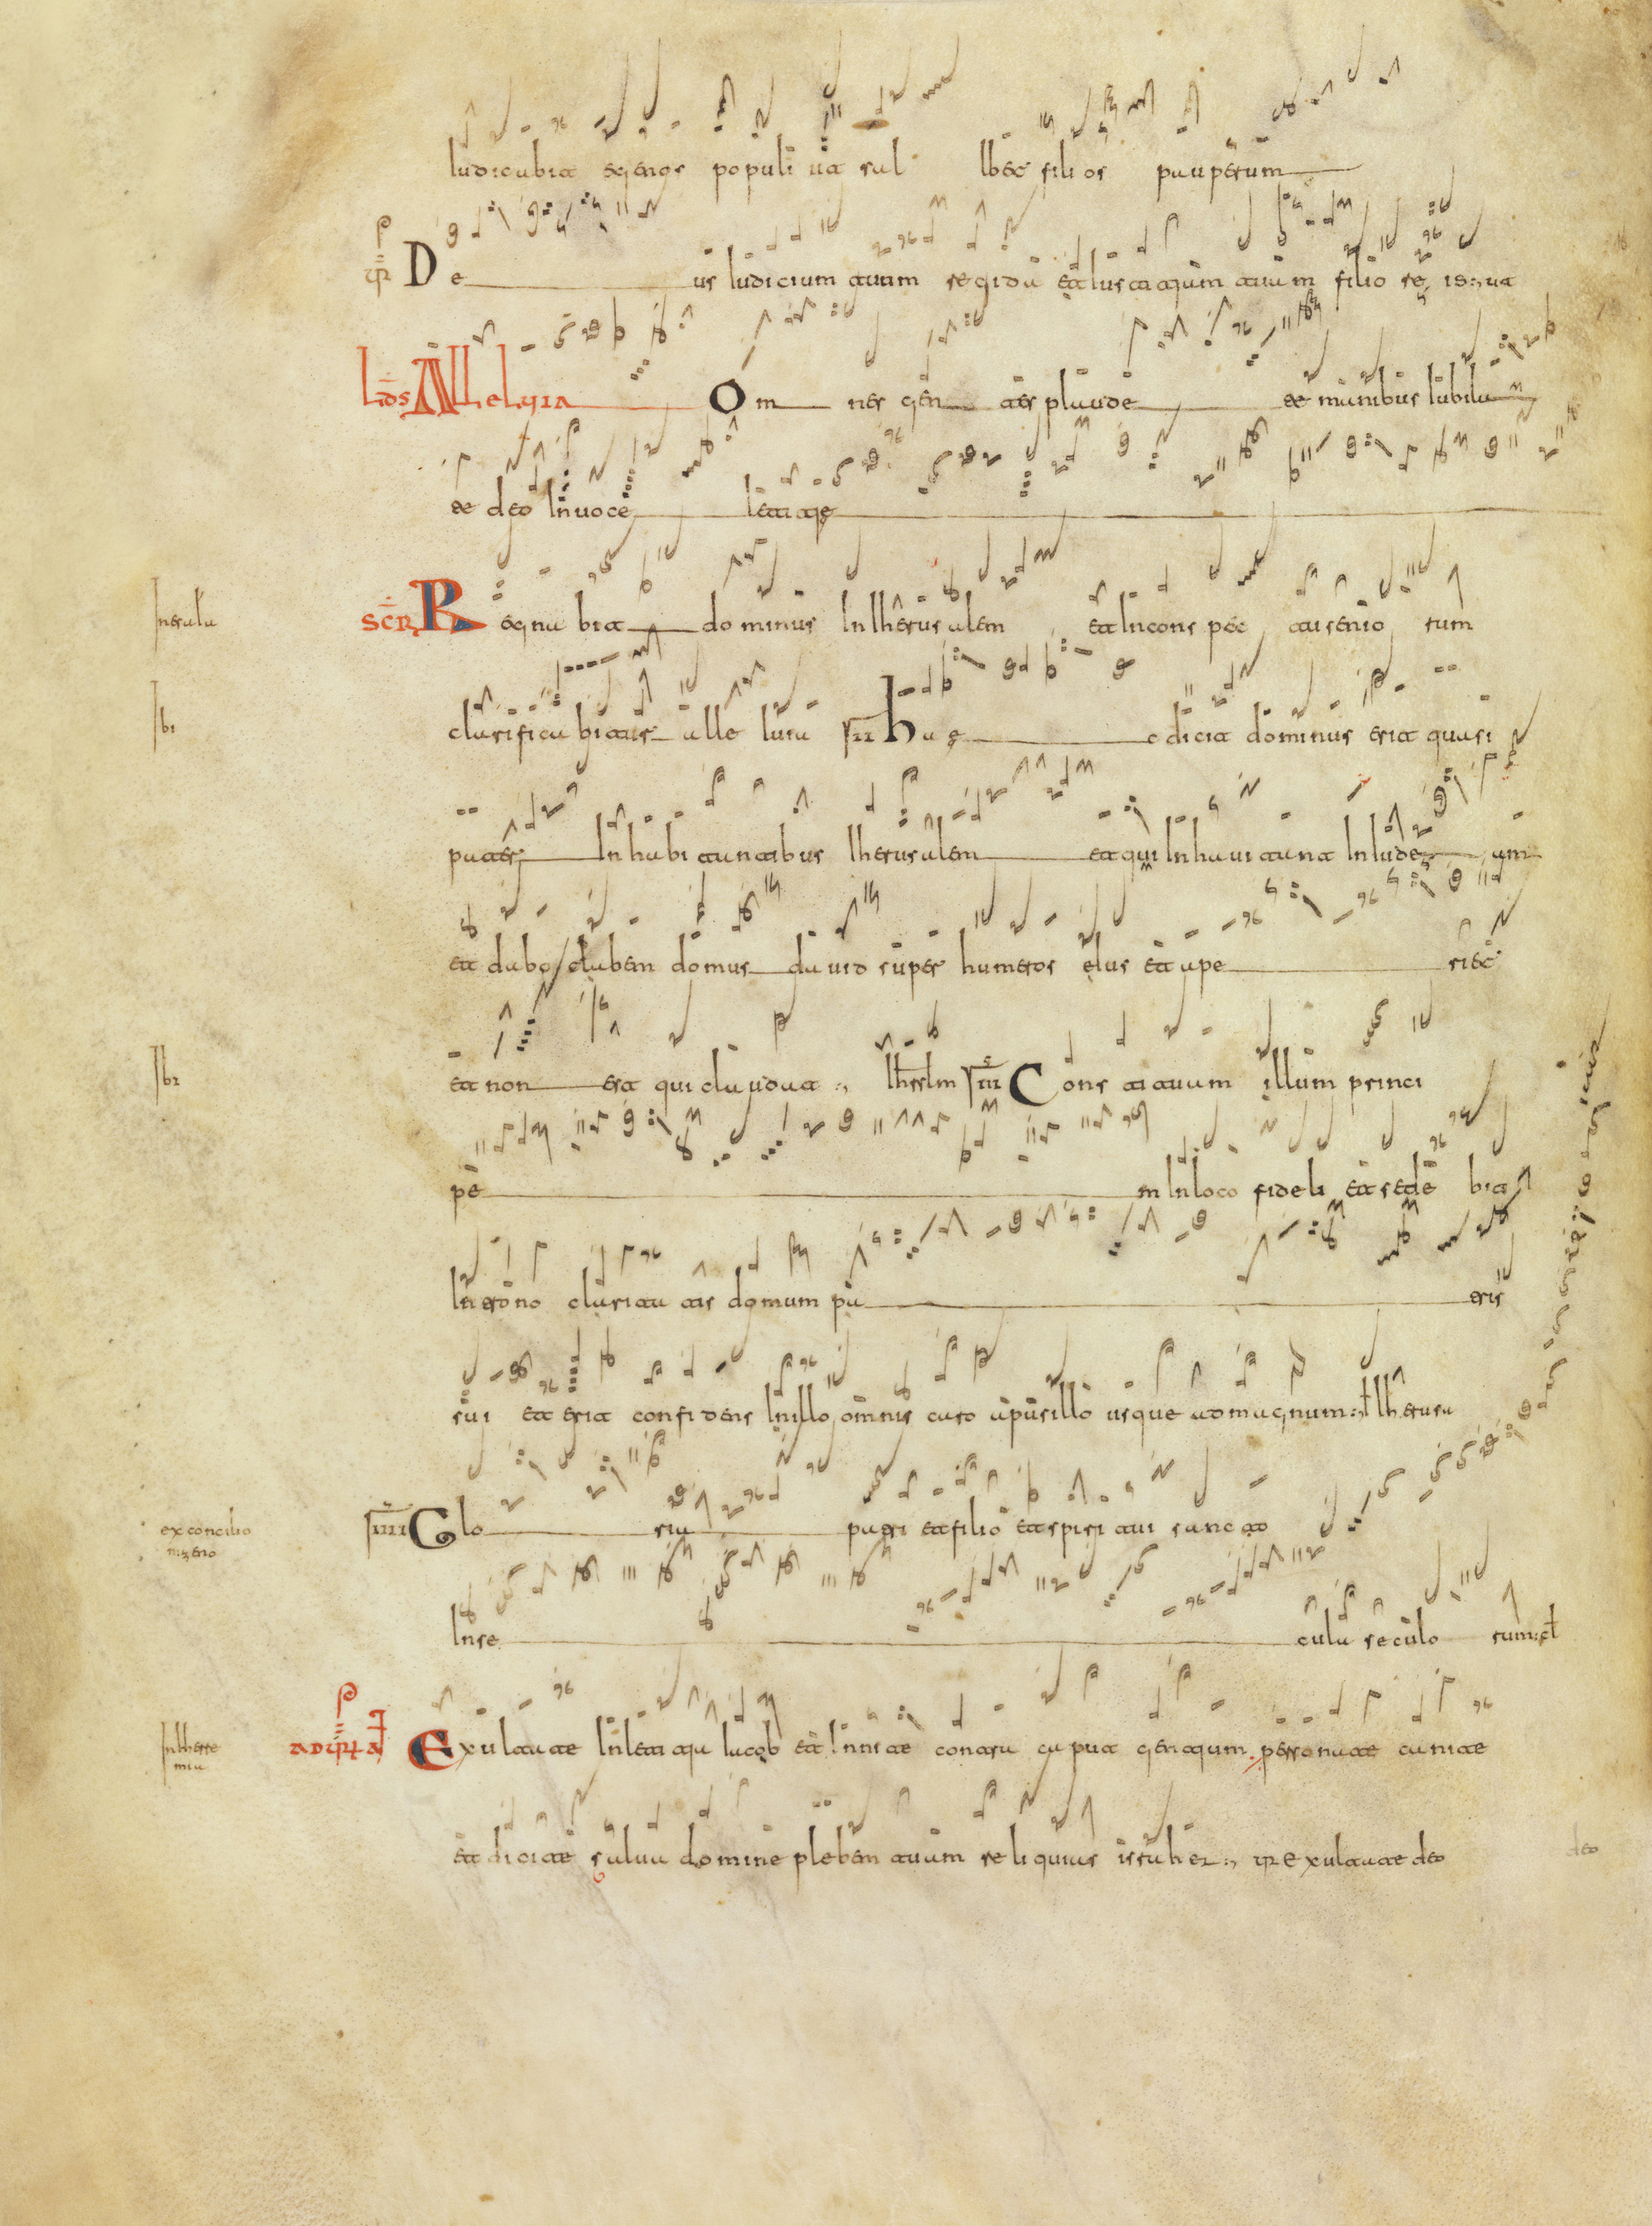 Iudicabit egenos populi ut sal bet filios pauperum
VR De us Iudicium tuum regi da et Iustitiam tuam filio re gis :, ut
LDS ALLELUIA Om nes gen tes plaude te manibus Iubila
te deo In uoce letitie
In esaia SCR Regna bit dominus In Iherusalem et In conspec tu senio rum
Ibi clarificabitur alle luia II Hae c dicit dominus erit quasi
pater Inhabitantibus Iherusalem et qui Inhauitant In Iude am
et dabo clabem domus dauid super humeros eius et ape riet
Ibi et non erit qui claudat :, Ihrslm III Cons tituam illum princi
pe m In loco fideli et sede bit
In trono clarita tis domum pa tris
sui et erit confidens In illo omnis caro a pusillo usque ad magnum :, Iherusa
ex concilio nizeno IIII Glo ria patri et filio et spiritui sancto
In se cula seculo rum
In Iheremia AD VRTA Exultate In letitia Iacob et Innite contra caput gentium personate canite
et dicite salua domine plebem tuum reliquias israhel :, VR exultate deo
deo